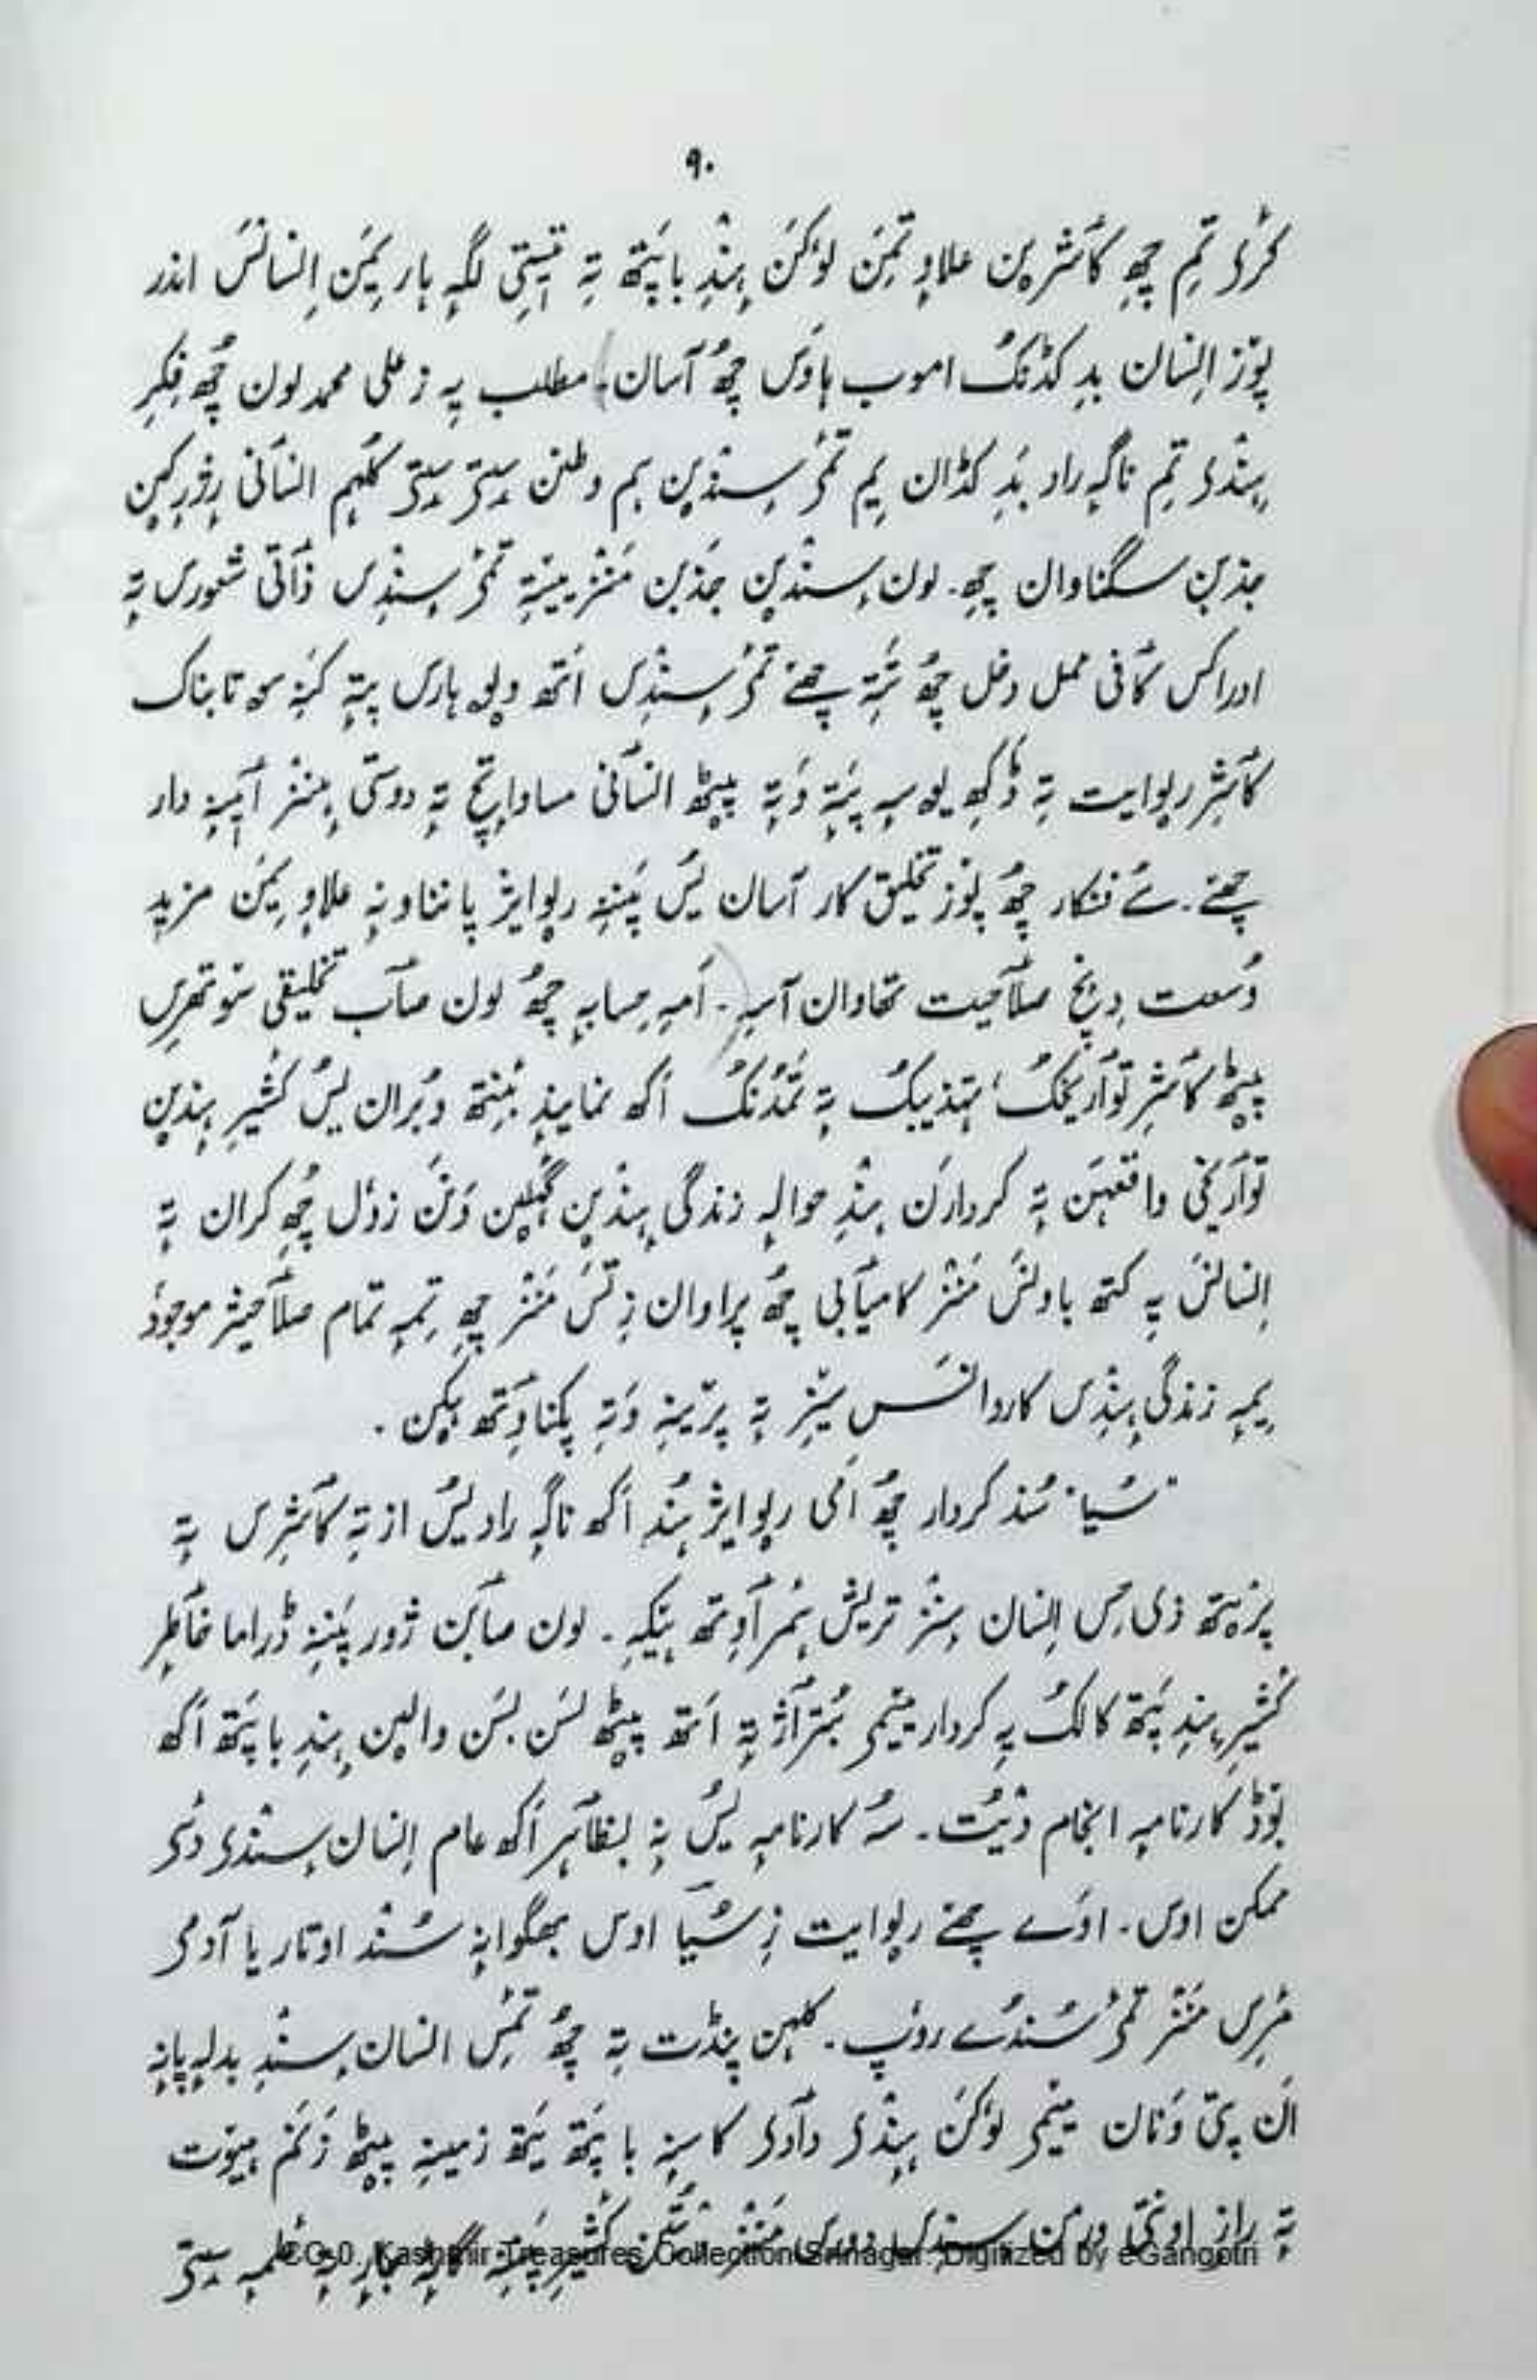 ۹۰
کٔرۍ تٔم چھِ کأشرین علاوٕ تِمَن لوٗکَن ہٕنٛدِ باپَتھ تہِ تیٖتی لگہٕ ہار یِمَن اِنسانَس اندر
پوٚز اِنسان بدِ کڈنُک اموب ہاوَس چھُ آسان۔ مطلب یہِ زِ علی محمد لون چھُ فِکرِ
ہِنٛدۍ تِم ناگہٕ راد بَدِ کڈان یِم تٔمۍ سٕنٛدین ہم وطنن سٟتۍ سٟتۍ کُلہم انسأنی
جذبن سگناوان چھِ۔ لون سٕنٛدین جذبن مَنٛز ییٚتہِ تٔمۍ سٕنٛدِس ذأتی شعورس تہٕ
ادراکس کأفی عمل دخل چھُ تَتہِ چھےٚ تٔمۍ سٕنٛدِس اَتھ پتہٕ کَنہِ سۄ تابناک
کأشِر رِوایت تہِ پٮ۪ٹھ انسأنی مساواتچ تہٕ دوستی ہٕنٛز آیینہٕ دار
چھےٚ۔ سُے فنکار چھُ پوٚز تخلیق کار آسان یُس پَننہِ رِوایژ پانناونہٕ علاوٕ یِمَن مزید
وُسعت دِنٕچ صلأحیت تھاوان آسہِ۔ اَمہِ حِسابہٕ چھُ لون صأب تخلیقی
پٮ۪ٹھ کأشرِ توأریخُک، تہذیبُک تہٕ تَمدُنُک اَکھ نمایندٕ بَنِتھ یُس کٔشیرِ ہٕنٛدین
توأریٖخی واقعہَن تہٕ کردارَن ہٕنٛدِ حوالہٕ زندگی ہٕنٛدین چھِ کران تہٕ
اِنسانَس یہِ کتھ باونس مَنٛز کامیأبی چھُ پراوان زِ تَس مَنٛز چھِ تِمہٕ تمام صلأحیژ موجوٗد
یِمہٕ زندگی ہٕنٛدِس کاروانَس تہٕ وَتہِ پکناوِتھ ہیکن۔
"سُیا" سُنٛد کردار چھُ اَمی رِوایژ ہُنٛد اَکھ ناگہٕ راد یُس از تہِ کأشرِس تہٕ
پرٛیتھ ذی حِس اِنسان سٕنٛز تریش ہیکہِ۔ لون صأبَن ژور پَننہِ ڈراما خأطرٕ
کٔشیرِ ہٕنٛدِ پَتھ کالُک یہِ کردار یٔمۍ بُترأژ تہٕ اَتھ پٮ۪ٹھ لسَن بسَن والین ہٕنٛدِ باپَتھ اَکھ
بوٚڈ کارنامہٕ انجام دیُت۔ سُہ کارنامہٕ یُس نہٕ بظأہر اَکھ عام اِنسان سٕنٛدۍ دٔسۍ
ممکن اوس۔ اوَے چھےٚ رِوایت زِ سُیا اوس بھگوانہٕ سُنٛد اوتار یا آدمۍ
مَنٛز تٔمۍ سُنٛدُے روٗپ۔ کلہن پنڈت تہِ چھُ تٔمِس انسان سٕنٛدِ بدلہٕ پانہٕ
وَنان یٔمۍ لوٗکَن ہٕنٛدۍ دأدۍ کاسنہٕ باپَتھ یَتھ زمینہِ پٮ۪ٹھ زَنٕم ہیوٚت
تہٕ رازٕ سٕنٛدِس دورس مَنٛز کٔشیرِ
CC-0. Kashmir Treasures Collection Srinagar. Digitized by eGangotri